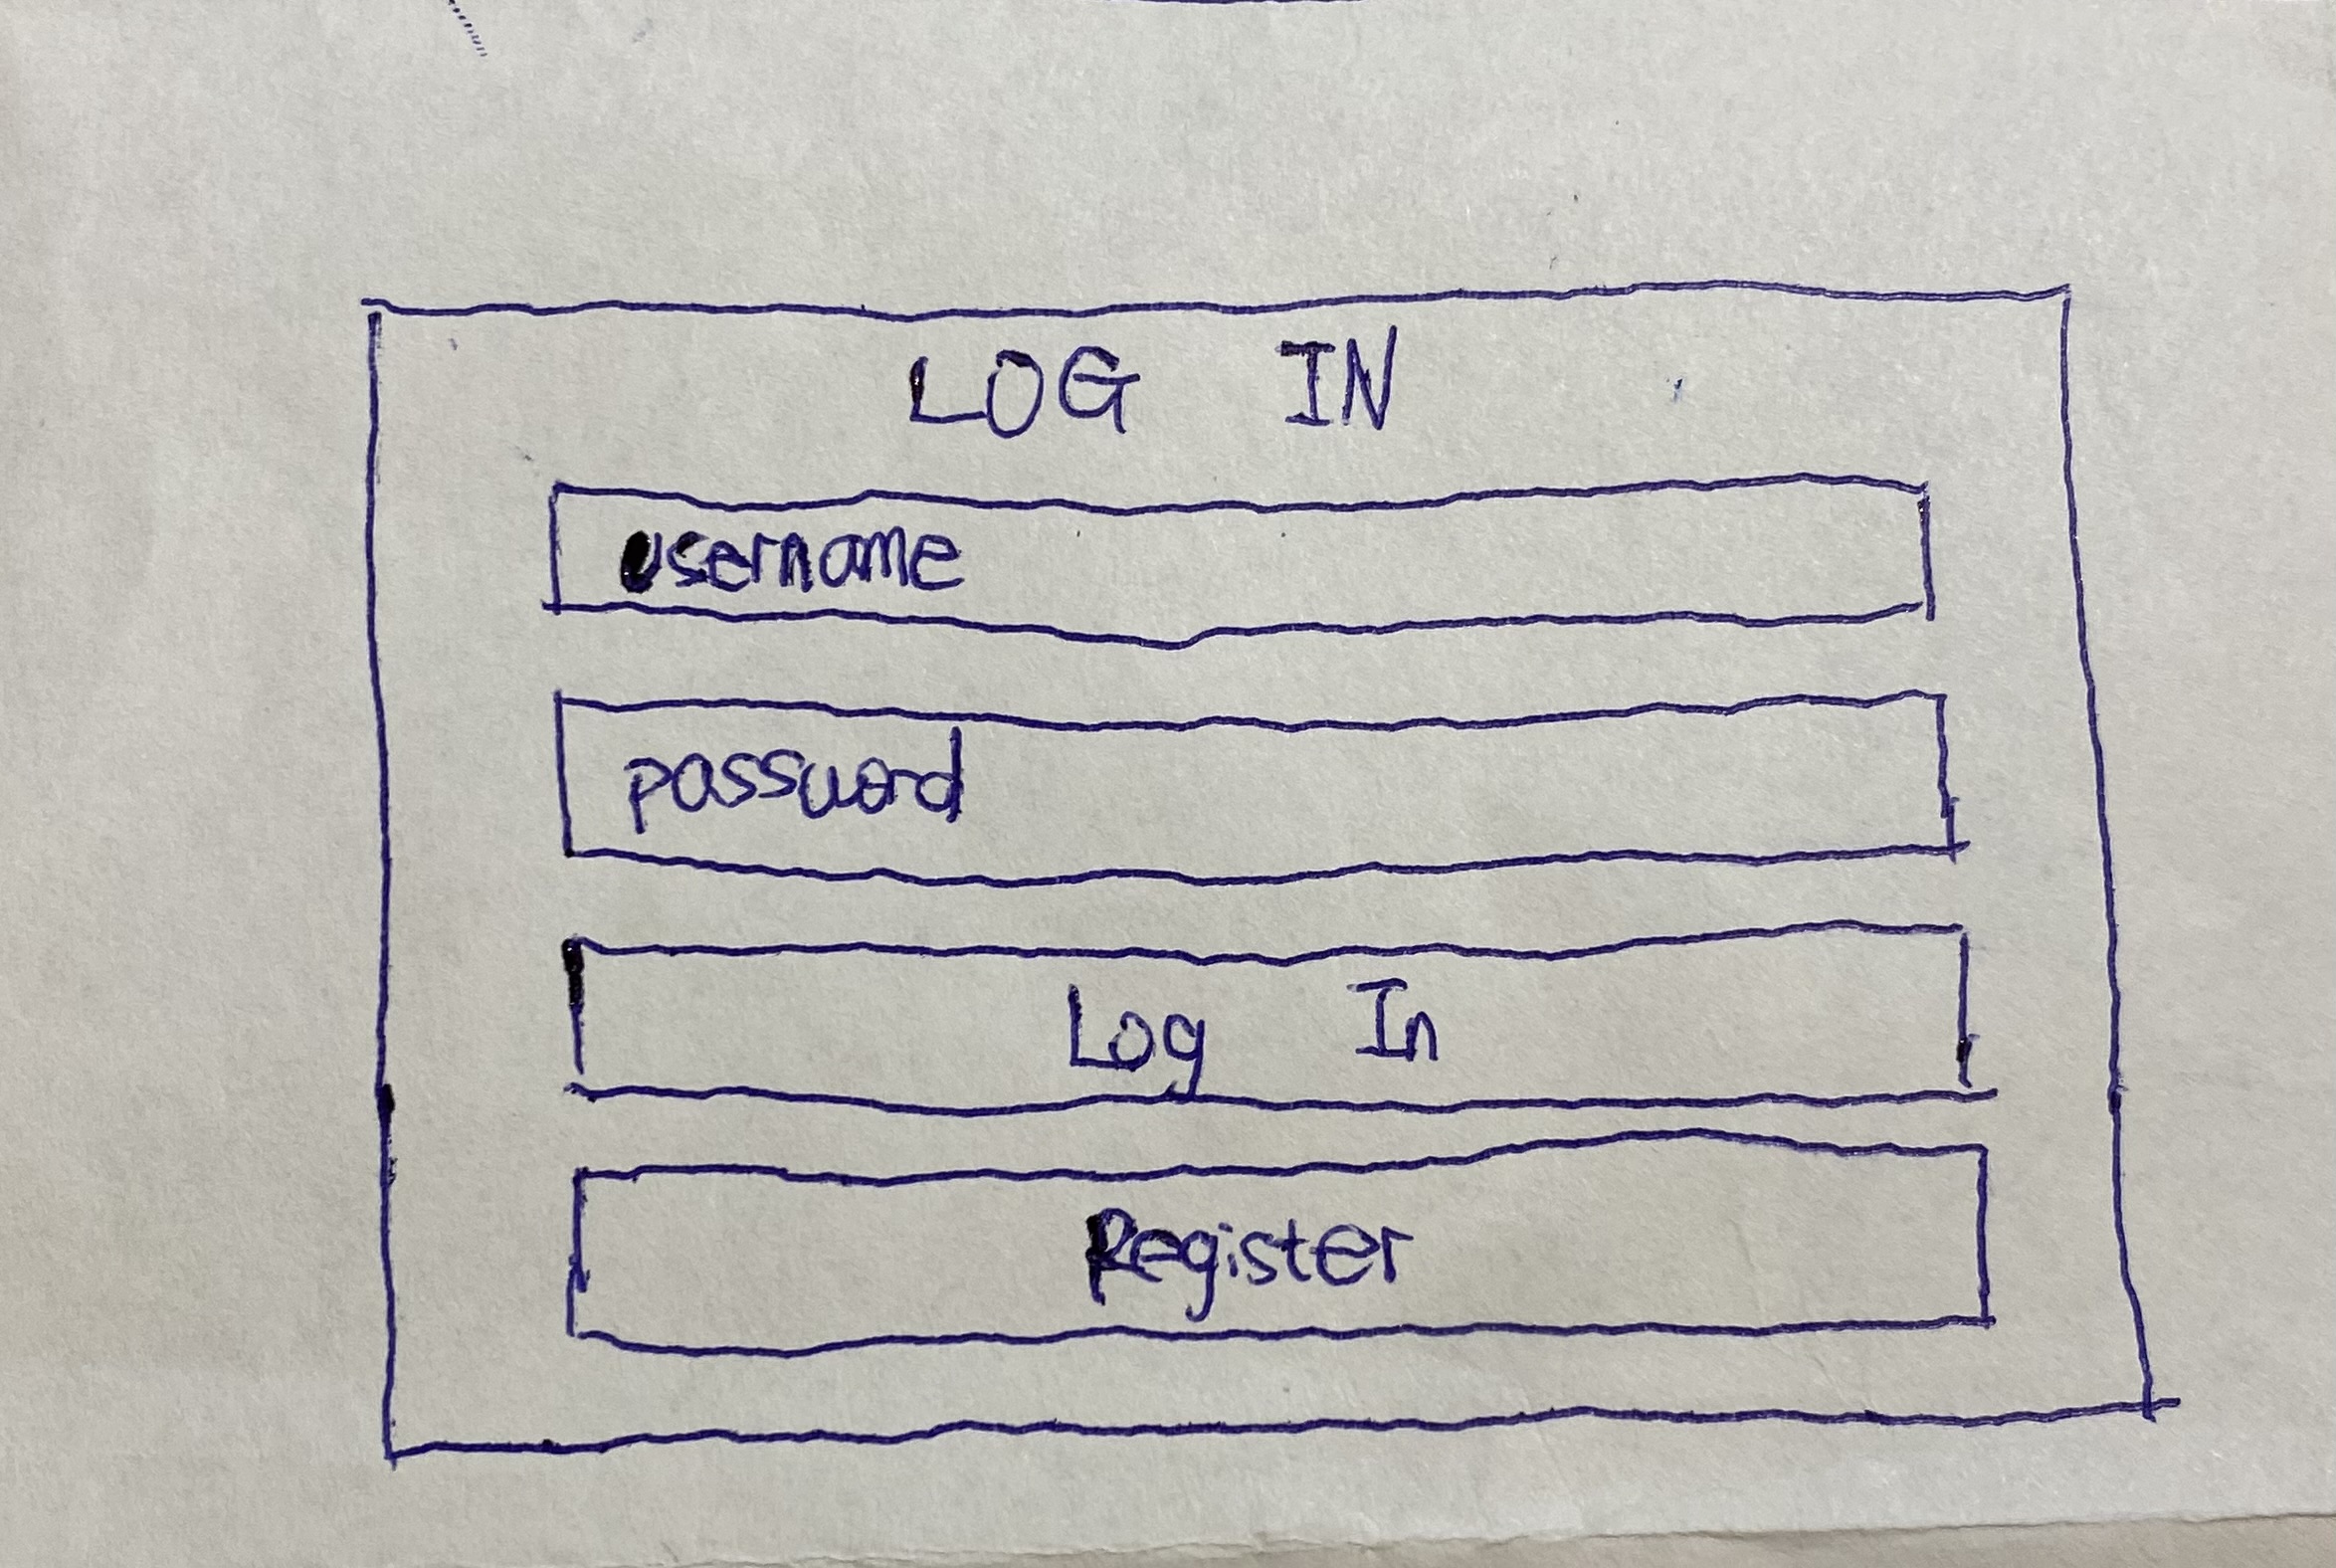 LOG IN
username
password
Log In
Register